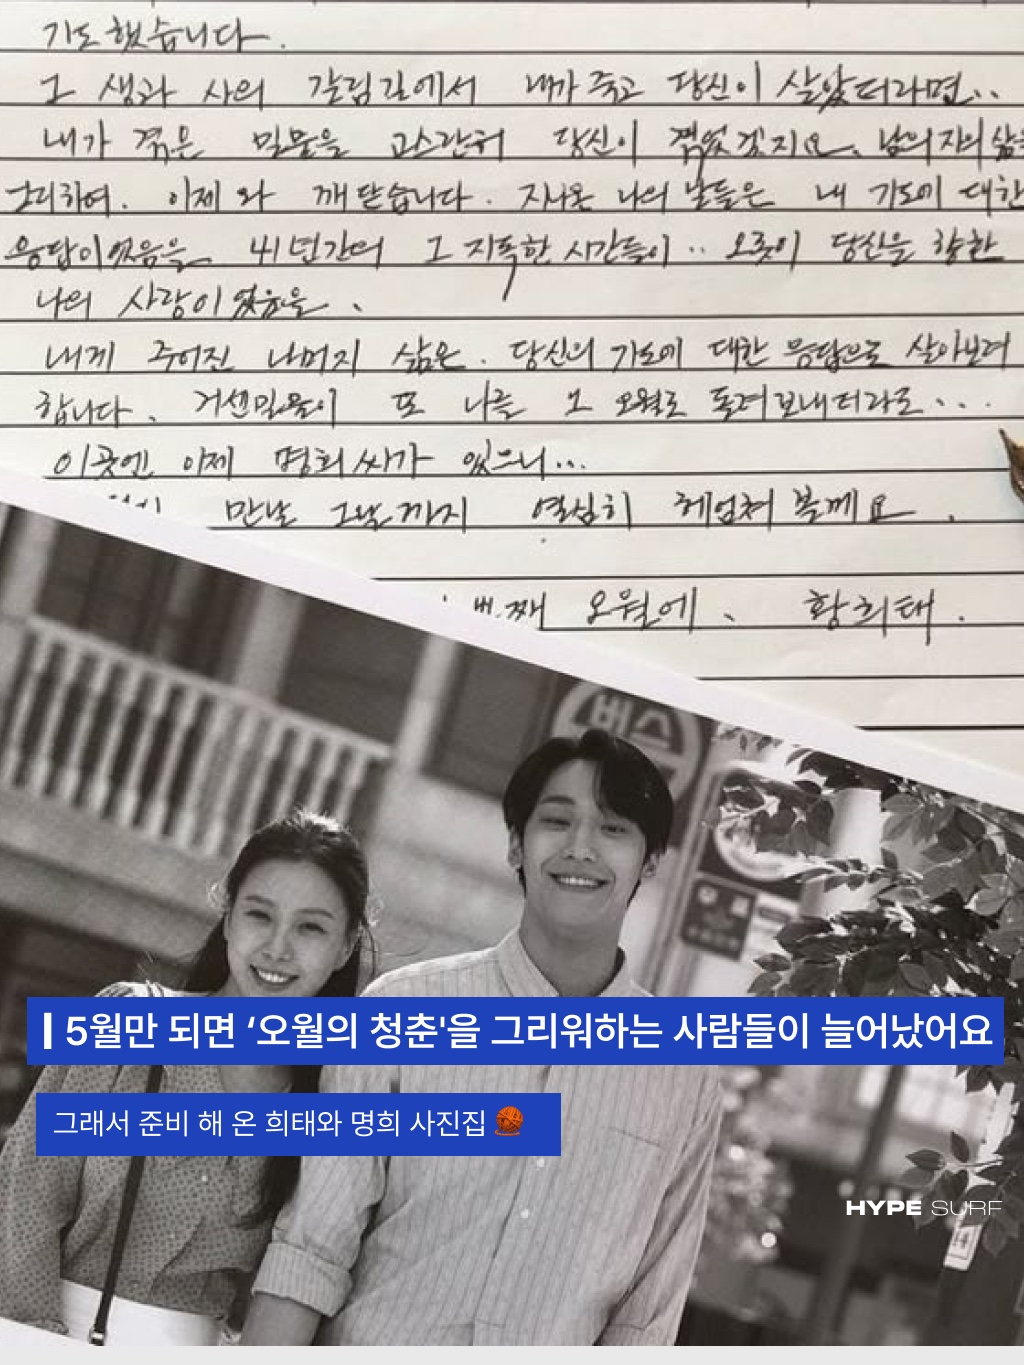 기도했습니다.
그 생과 사의 갈림길에서 내가 죽고 당신이 살았더라면..
내가 겪은 밀물을 고스란히 당신이 겪었겠지요. 남의 자의 삶을
그리하여. 이제와 깨닫습니다. 지나온 나의 날들은 내 기도에 대한
응답이었음을 41년간의 그 지독한 시간들이.. 오롯이 당신을 향한
나의 사랑이었음을.
내게 주어진 나머지 삶은. 당신의 기도에 대한 응답으로 살아보려
합니다. 거센밀물이 또 나를 그 오월로 돌려보내더라도....
이곳엔 이제 명희씨가 있으니...
만날 그날까지 열심히 헤엄쳐 볼께요.
번째 오월에. 황희태.
버스
5월만 되면 ‘오월의 청춘'을 그리워하는 사람들이 늘어났어요
그래서 준비 해 온 희태와 명희 사진집 🧶
HYPE SURF